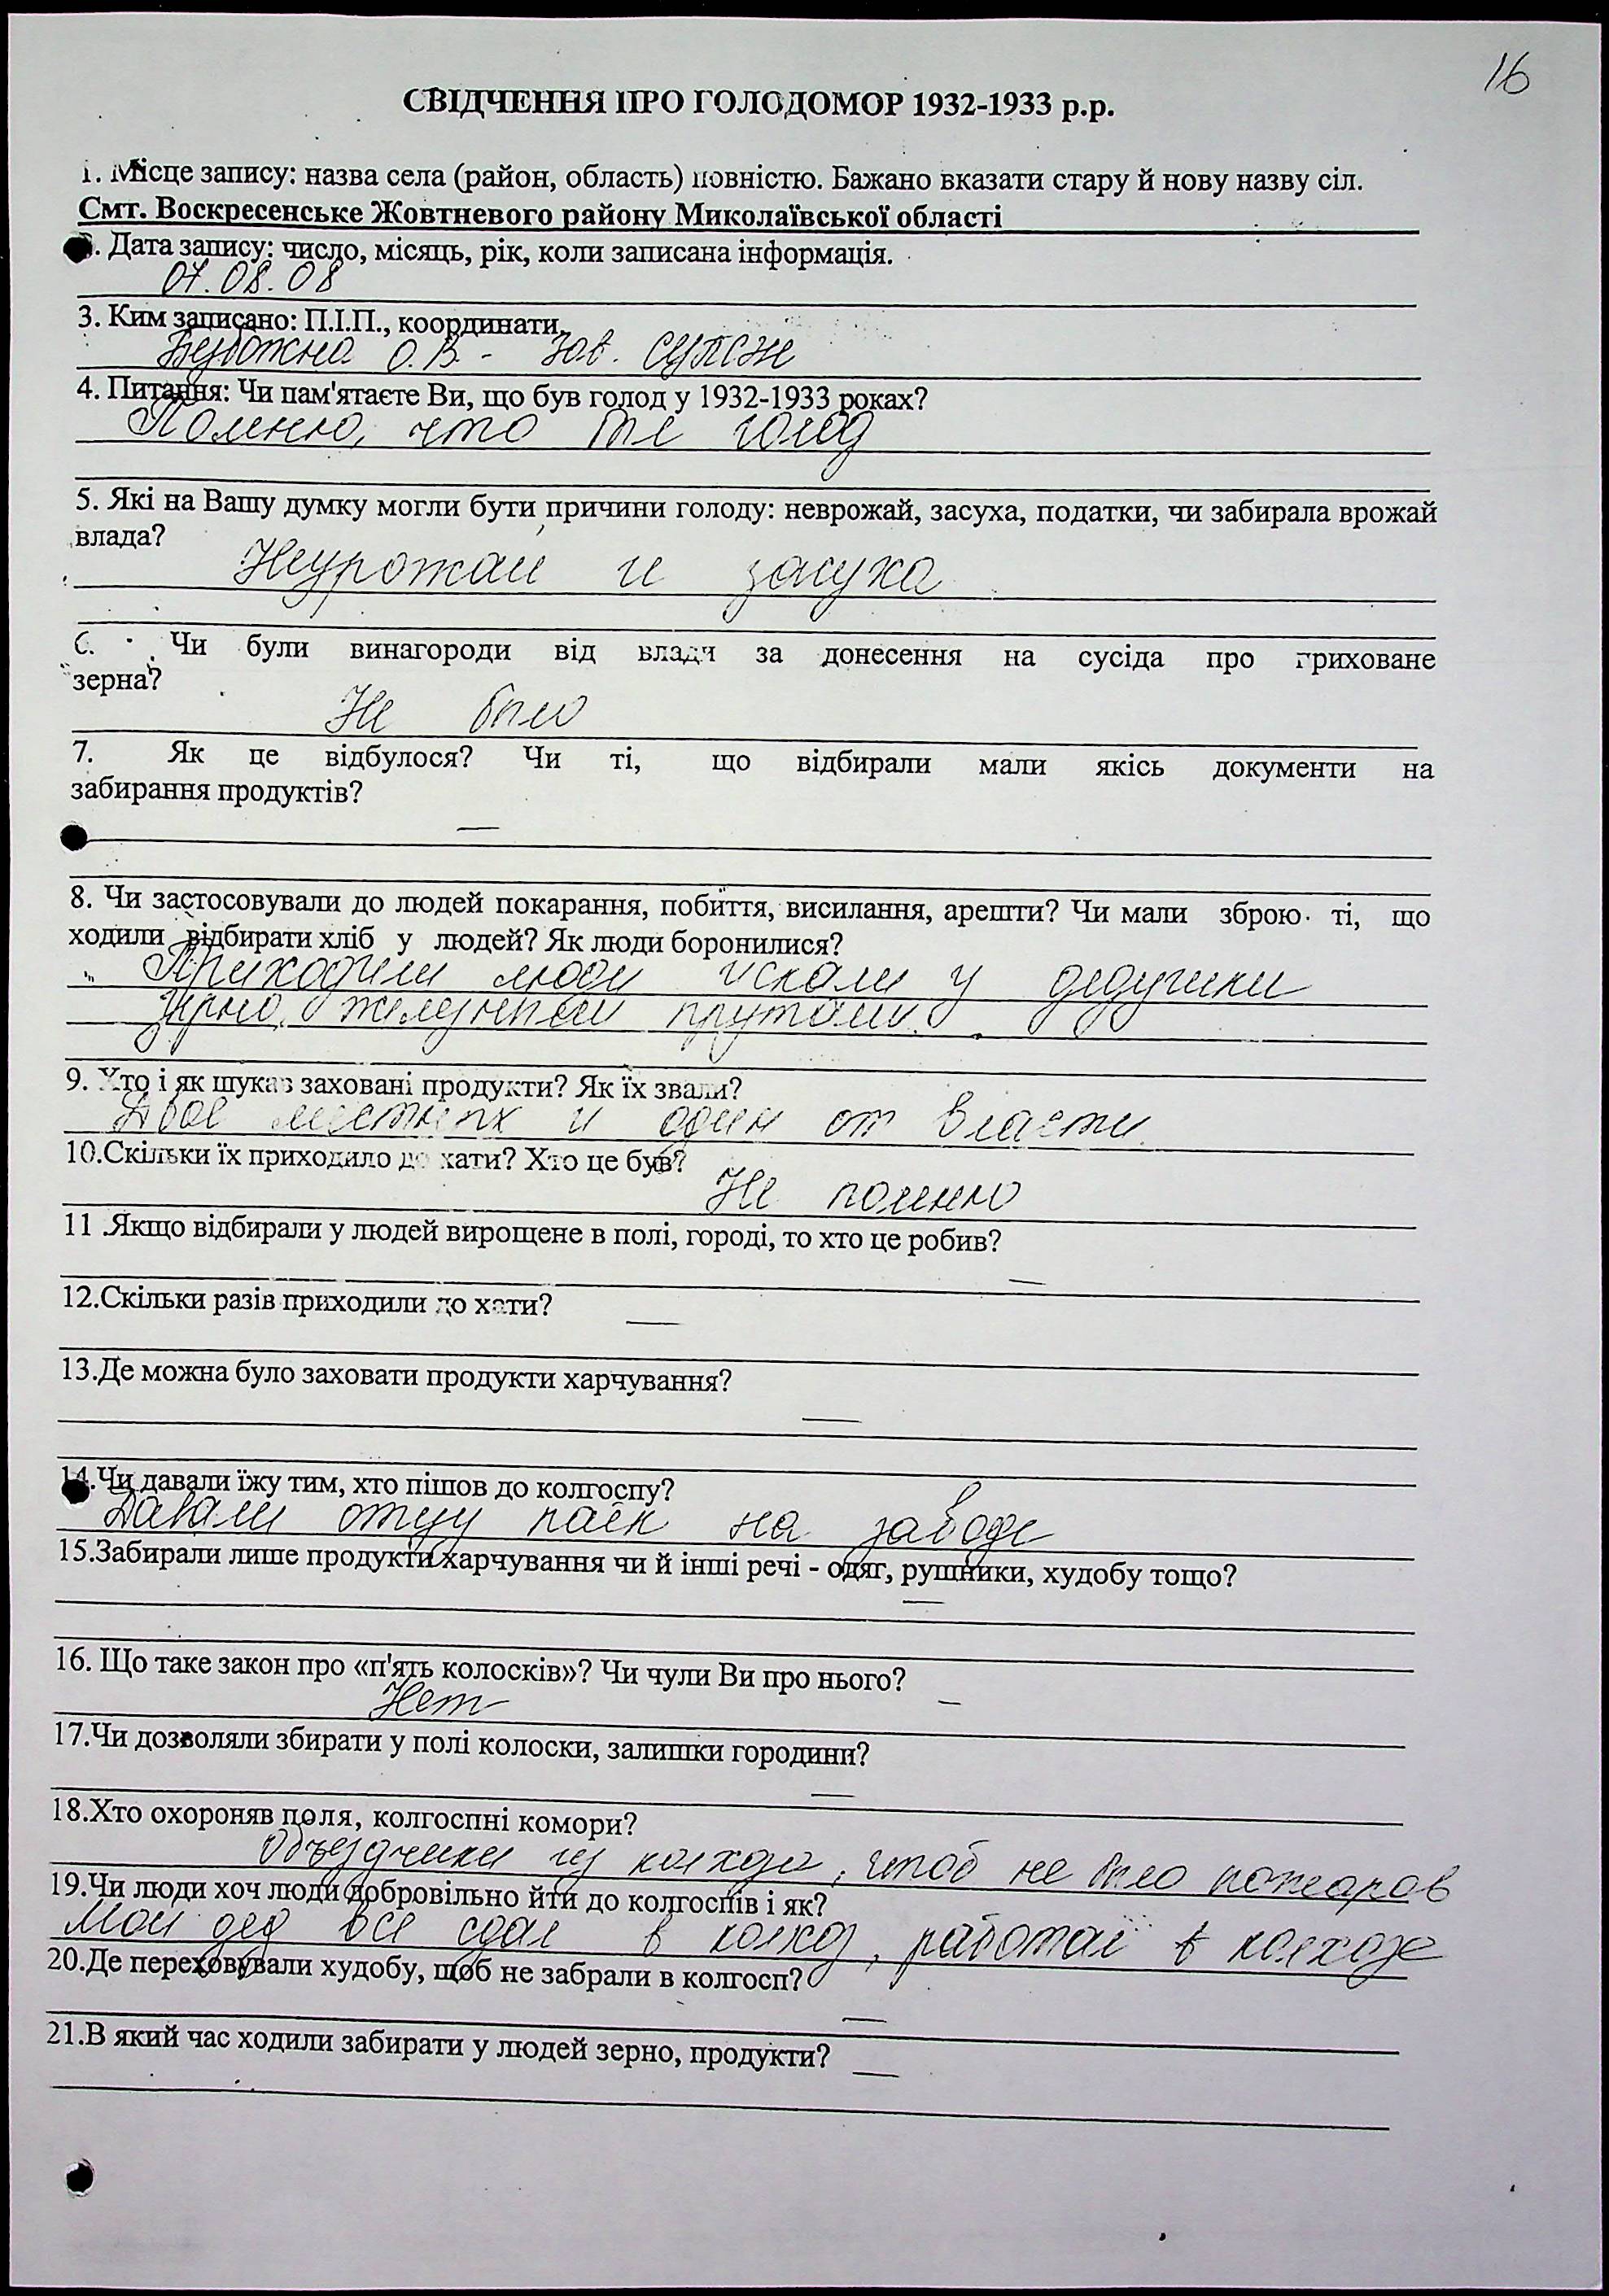 16
СВІДЧЕННЯ ПРО ГОЛОДОМОР 1932-1933 р.р.
1. Місце запису: назва села (район, область) повністю. Бажано вказати стару й нову назву сіл.
Смт. Воскресенське Жовтневого району Миколаївської області
. Дата запису: число, місяць, рік, коли записана інформація.
07.08.08
3. Ким записано: П.І.П., координати.
О.В. - зав.
4. Питання: Чи пам'ятаєте Ви, що був голод у 1932-1933 роках?
Помню, что был голод
5. Які на Вашу думку могли бути причини голоду: неврожай, засуха, податки, чи забирала врожай
влада?
Неурожай и засуха
6. Чи були винагороди від влади за донесення на сусіда про приховане
зерна?
Не было
7. Як це відбулося? Чи ті, що відбирали мали якісь документи на
забирання продуктів?
—
8. Чи застосовували до людей покарання, побиття, висилання, арешти? Чи мали зброю ті, що
ходили відбирати хліб у людей? Як люди боронилися?
Приходили люди искали у дедушки
зерно, железными прутами.
9. Хто і як шукав заховані продукти? Як їх звали?
Двое местных и один от власти
10.Скільки їх приходило до хати? Хто це був?
Не помню
11 .Якщо відбирали у людей вирощене в полі, городі, то хто це робив?
—
12.Скільки разів приходили до хати?
—
13.Де можна було заховати продукти харчування?
—
14.Чи давали їжу тим, хто пішов до колгоспу?
Давали отцу паёк на заводе
15.Забирали лише продукти харчування чи й інші речі - одяг, рушники, худобу тощо?
—
16. Що таке закон про «п'ять колосків»? Чи чули Ви про нього?
Нет —
17.Чи дозволяли збирати у полі колоски, залишки городини?
—
18.Хто охороняв поля, колгоспні комори?
Объездчики из колхоза, чтоб не было пожаров
19.Чи люди хоч люди добровільно йти до колгоспів і як?
Мой дед всё сдал в колхоз, работал в колхозе
20.Де переховували худобу, щоб не забрали в колгосп?
—
21.В який час ходили забирати у людей зерно, продукти?
—